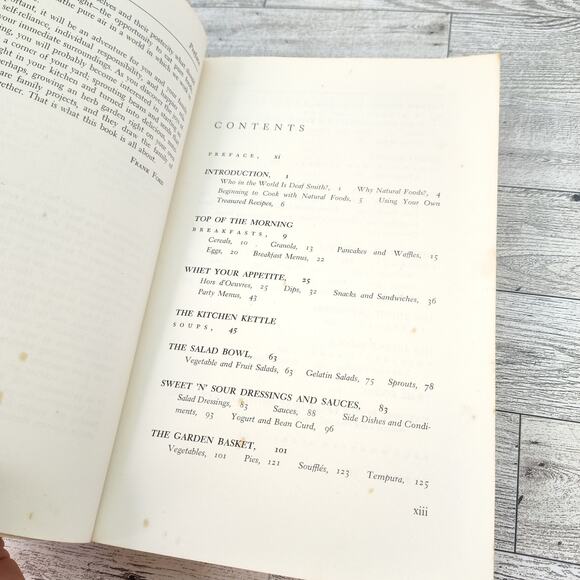 selves and their posterity what
right—the opportunity to eat
athe pure air in a world in which
Prefa
portant, it will be an adventure for you and your
self-reliance, individual responsibility, and
your immediate surroundings. As you discover the
ng, you will probably become interested in
a corner of your yard; sprouting beans and seeds
ght in your kitchen and turned into delicious,
erhaps, growing an herb garden right on your
are family projects, and they draw the family
gether. That is what this book is all about.
FRANK FORD
CONTENTS
PREFACE, xi
INTRODUCTION, 1
Who in the World Is Deaf Smith?, 1 Why Natural Foods?, 4
Beginning to Cook with Natural Foods, 5 Using Your Own
Treasured Recipes, 6
TOP OF THE MORNING
BREAKFASTS, 9
Cereals, 10 Granola, 13 Pancakes and Waffles, 15
Eggs, 20 Breakfast Menus, 22
WHET YOUR APPETITE, 25
Hors d'Oeuvres, 25 Dips, 32 Snacks and Sandwiches, 36
Party Menus, 43
THE KITCHEN KETTLE
SOUPS, 45
THE SALAD BOWL, 63
Vegetable and Fruit Salads, 63 Gelatin Salads, 75 Sprouts, 78
SWEET 'N' SOUR DRESSINGS AND SAUCES, 83
Salad Dressings, 83 Sauces, 88 Side Dishes and Condi-
ments, 93 Yogurt and Bean Curd, 96
THE GARDEN BASKET, 101
Vegetables, 101 Pies, 121 Soufflés, 123 Tempura, 125
xiii